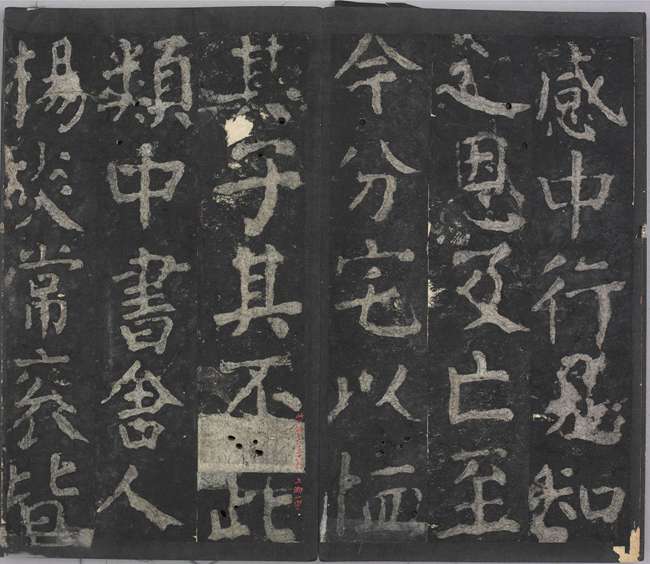 感中行知
之恩及亡至
今分宅以恤
其子其不此
類中書舍人
楊炎常袞皆